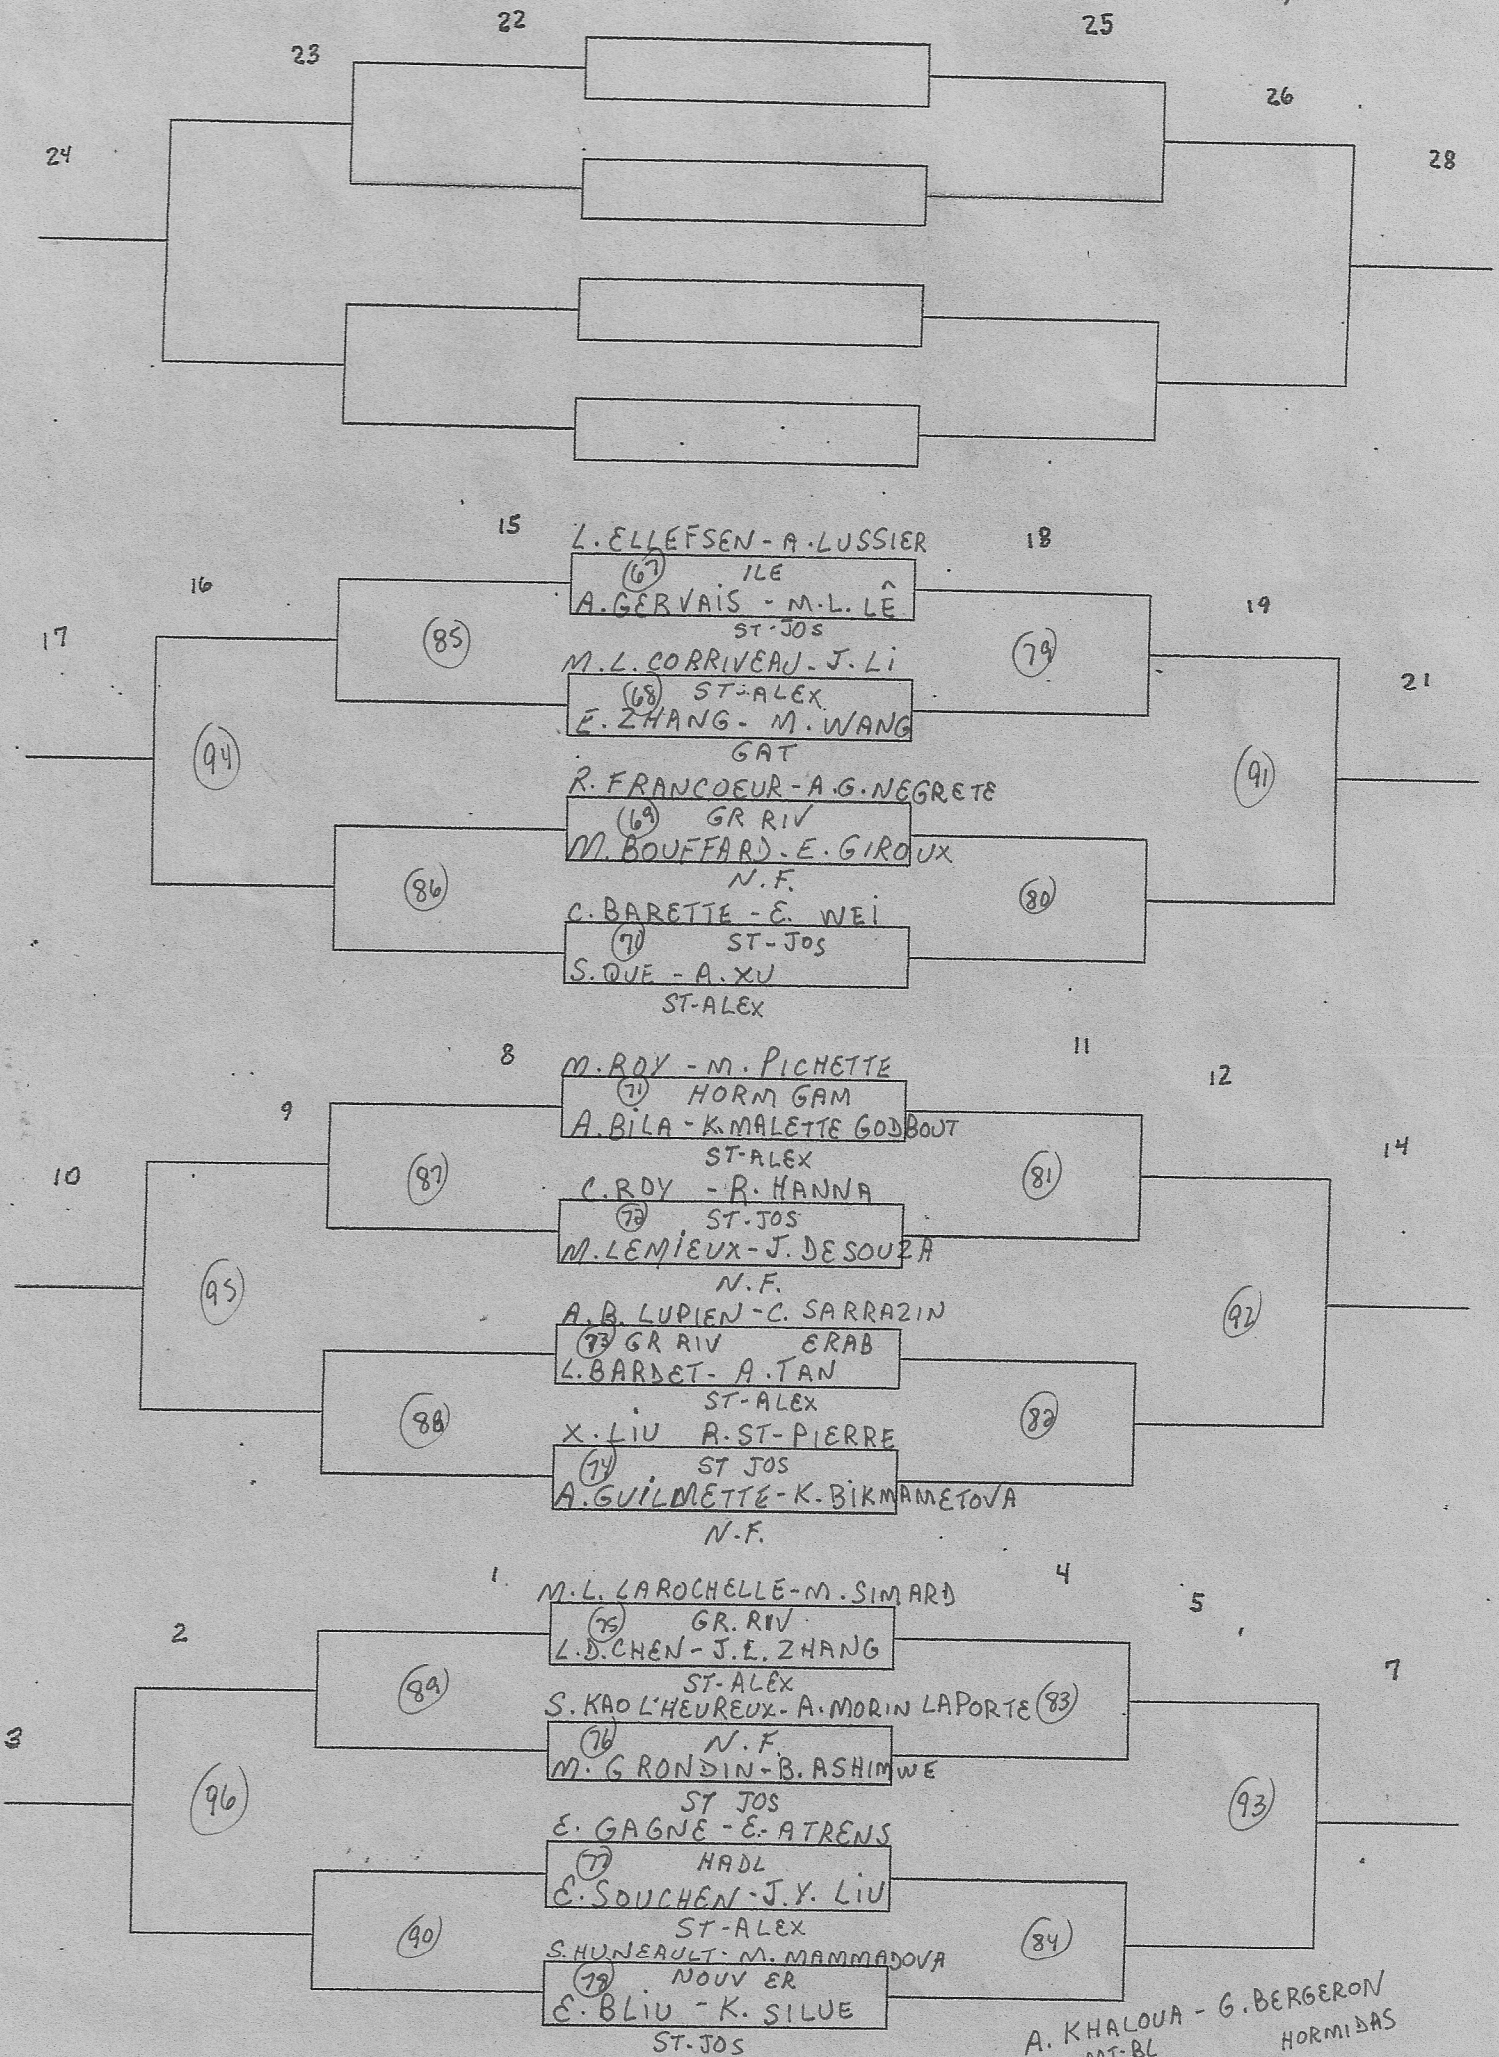 22
25
23
26
24
28
15
L. ELLEFSEN - A. LUSSIER
18
67 ILE
16
A. GERVAIS - M.L. LÊ
19
17
85
ST-JOS
79
M.L. CORRIVEAU - J. Li
21
68 ST-ALEX
E. ZHANG - M. WANG
94
GAT
91
R. FRANCOEUR - A.G. NEGRETE
69 GR RIV
M. BOUFFARD - E. GIROUX
86
N.F.
80
C. BARETTE - E. WEi
70 ST-JOS
S. QUE - A. XU
ST-ALEX
8
M. ROY - M. PICHETTE
11
71 HORM GAM
12
9
A. BiLA - K. MALETTE GODBOUT
ST-ALEX
14
10
87
C. ROY - R. HANNA
81
72 ST-JOS
M. LEMiEUX - J. DESOUZA
95
N.F.
92
A.B. LUPIEN - C. SARRAZIN
73 GR RIV ERAB
L. BARDET - A. TAN
ST-ALEX
88
X. LiU R. ST-PIERRE
82
74 ST JOS
A. GUiLMETTE - K. BiKMAMETOVA
N.F.
1
M.L. LAROCHELLE - M. SIMARD
4
5
2
75 GR. RIV
L.D. CHEN - J.E. ZHANG
7
89
ST-ALEX
S. KAO L'HEUREUX - A. MORIN LAPORTE 83
3
76 N.F.
M. GRONDIN - B. ASHIMWE
96
ST JOS
93
E. GAGNE - E. ATRENS
77 HADL
E. SOUCHEN - J.Y. LiU
90
ST-ALEX
84
S. HUNEAULT - M. MAMMADOVA
78 NOUV ER
E. BLiU - K. SILUE
ST-JOS
A. KHALOUA - G. BERGERON
MT-BL HORMIDAS